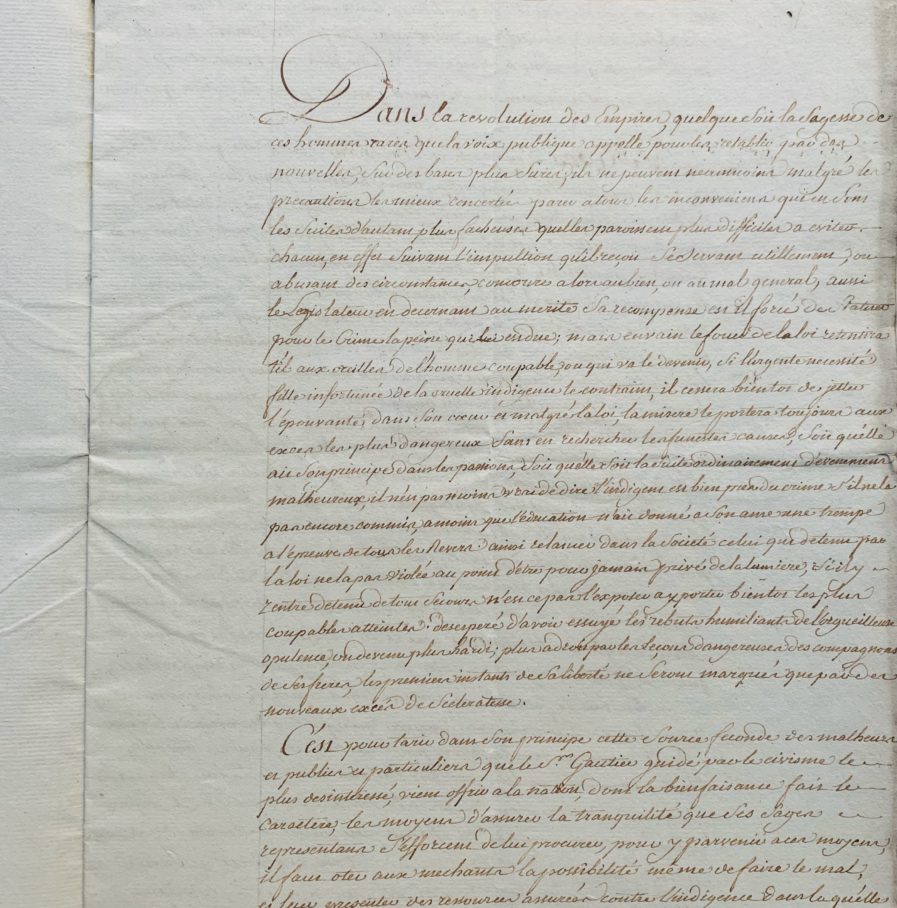 Dans la revolution des Empires, quelque soit la Sagesse de
ces hommes rares que la voix publique appelle pour les retablir par des
nouvelles, sur des bases plus sures, ils ne peuvent neanmoins malgré les
precautions les mieux concertées parer a tous les inconveniens qui en sont
les suites d'autant plus facheuses quelles paroissent plus difficiles a eviter.
chacun, en effet suivant l'impultion qu'il reçoit se servant utillement, ou
abusant des circonstances, concourre alors au bien, ou au mal general, aussi
le Legislateur en decernant au merite sa recompense est il forcé de
pour le Crime la peine qui lui en due; mais en vain le fouet de la loi retentira
t'il aux oreilles de l'homme coupable, ou qui va le devenir, si l'urgente necessité
fille infortunée de la cruelle indigence le contraint, il cessera bientot de jetter
l'épouvante, dans son cœur et malgré la loi, la misere le portera toujours aux
exces les plus dangereux sans en rechercher les funestes causes, soit qu'elle
ait son principe dans les passions, soit qu'elle soit la suite ordinairement d'evenemens
malheureux, il n'est pas moins vrai de dire l'indigent est bien près du crime s'il ne l'a
pas encore commis, a moins que l'éducation n'ait donné a son ame une trempe
a l'épreuve de tous les Revers ainsi relancé dans la Societé celui qui detenu par
la loi ne la pas violée au point d'être pour jamais privé de la lumiere, s'il y
rentre denué de tous secours n'est ce pas l'exposer a y porter bientot les plus
coupables atteintes? desesperé d'avoir essuyé les rebuts humiliants de l'orgueilleuse
opulence, ou devenu plus hardi, plus adroit par les leçons dangereuses des compagnons
de ses freres, les premiers instants de sa liberté ne seront marqués que par de
nouveaux excès de Sceleratesse.
C'est pour tarir dans son principe cette source feconde des malheurs
et publics et particuliers que le Sr Gautier guidé par le civisme le
plus desinteressé, vient offrir a la nation, dont la bienfaisance fait le
caractère, les moyens d'assurer la tranquilité que ses Sages
representans s'efforcent de lui procurer, pour y parvenir a ces moyens,
il faut oter aux mechants la possibilité même de faire le mal,
et leur presenter des ressources assurées contre l'indigence dans laquelle